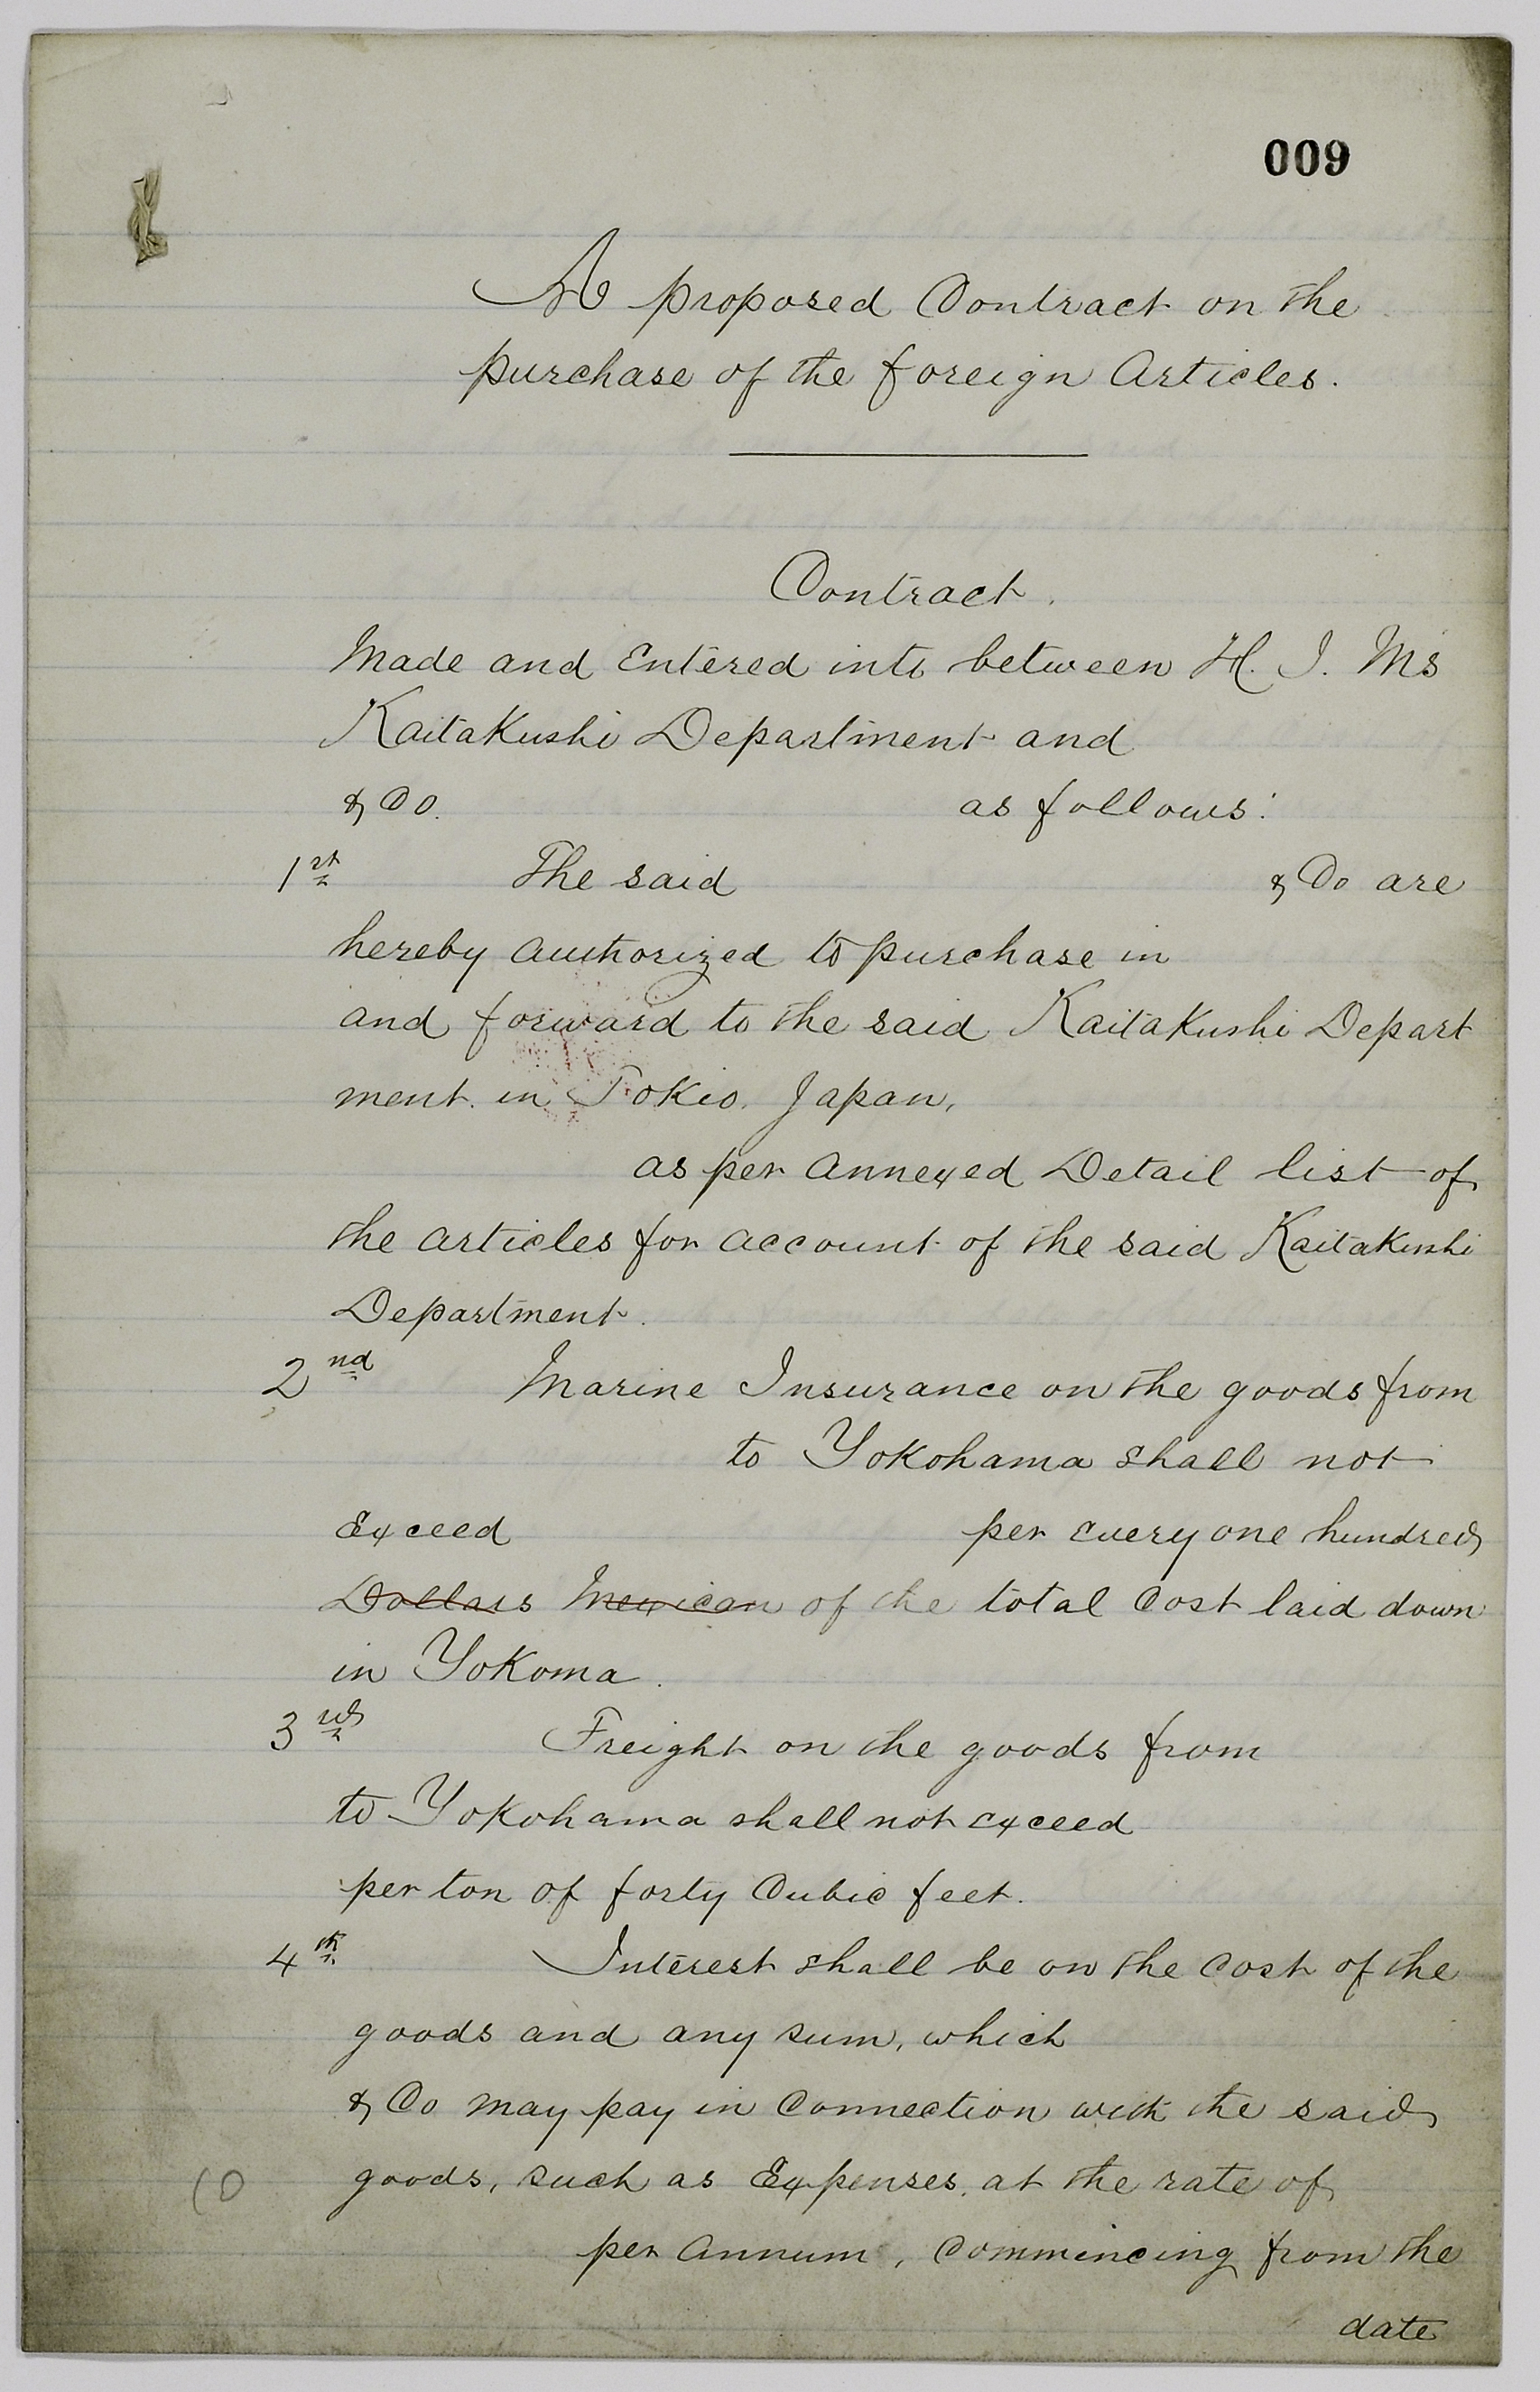 009
A proposed Contract on the
purchase of the foreign Articles.
Contract.
Made and Entered into between H. I. Ms
Kaitakushi Department and
& Co. as follows:
1st The said & Co are
hereby authorized to purchase in
and forward to the said Kaitakushi Depart
ment. in Tokio. Japan,
as per annexed Detail list of
the articles for account of the said Kaitakushi
Department.
2nd Marine Insurance on the goods from
to Yokohama shall not
Exceed per every one hundred
Dollars Mexican of the total Cost laid down
in Yokoma.
3rd Freight on the goods from
to Yokohama shall not exceed
per ton of forty Cubic feet.
4th Interest shall be on the Cost of the
goods and any sum, which
& Co may pay in Connection with the said
goods, such as Expenses, at the rate of
per annum, Commencing from the
date